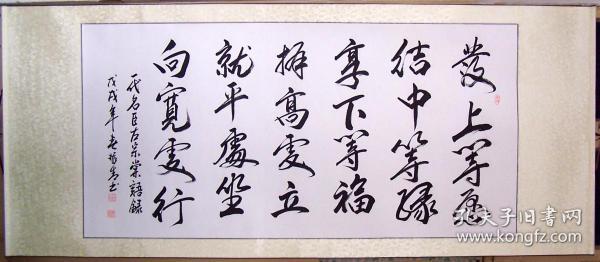 發上等愿
结中等缘
享下等福
择高处立
就平處坐
向宽处行
一代名臣左宗棠語録
戊戌年
孔夫子旧书网
www.kongfz.com